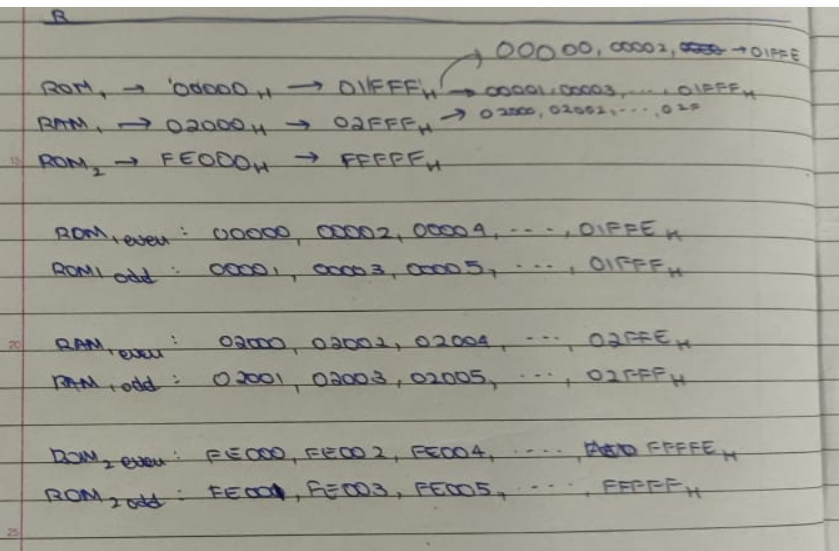 R
00000, 00002, → 01FFE
ROM₁ → 00000H → 01FFFH → 00001, 00003, ..., 01FFFH
RAM₁ → 02000H → 02FFFH → 02000, 02002, ..., 02F
ROM₂ → FE000H → FFFFFH
ROM₁ even : 00000, 00002, 00004, ..., 01FFEH
ROM1 odd : 00001, 00003, 00005, ..., 01FFFH
20
RAM₁ even : 02000, 02002, 02004, ..., 02FFEH
RAM₁ odd : 02001, 02003, 02005, ..., 02FFFH
ROM₂ even : FE000, FE002, FE004, ..., FFFFEH
ROM₂ odd : FE001, FE003, FE005, ..., FFFFFH
25